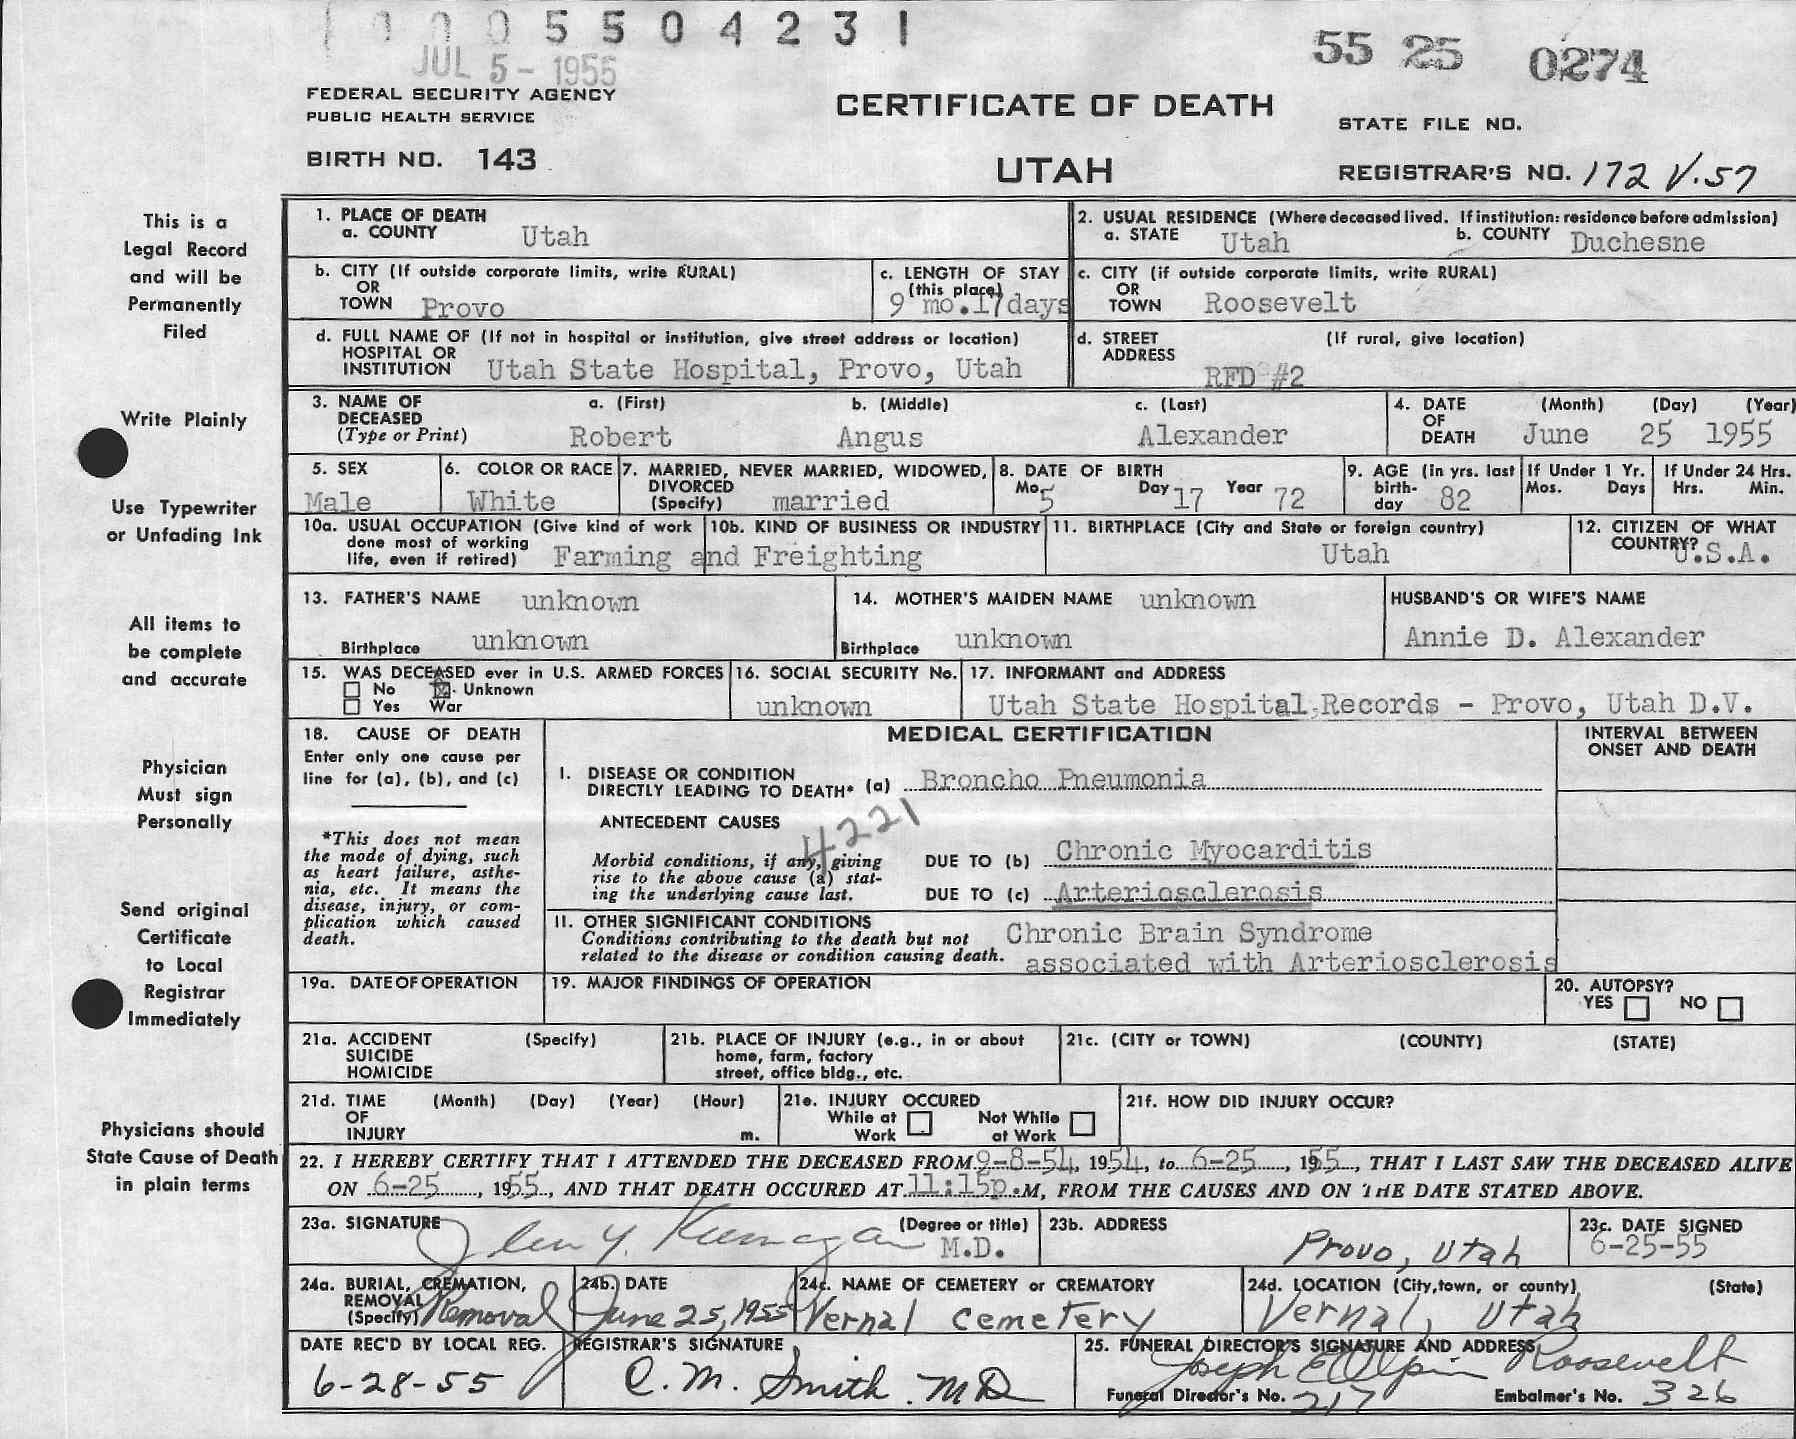 1000 5504231
JUL 5 - 1955
55 25 0274
FEDERAL SECURITY AGENCY
PUBLIC HEALTH SERVICE
CERTIFICATE OF DEATH
STATE FILE NO.
BIRTH NO. 143
UTAH
REGISTRAR'S NO. 172 V.57
This is a
Legal Record
and will be
Permanently
Filed
Write Plainly
Use Typewriter
or Unfading Ink
All items to
be complete
and accurate
Physician
Must sign
Personally
Send original
Certificate
to Local
Registrar
Immediately
Physicians should
State Cause of Death
in plain terms
1. PLACE OF DEATH
a. COUNTY Utah
2. USUAL RESIDENCE (Where deceased lived. If institution: residence before admission)
a. STATE Utah b. COUNTY Duchesne
b. CITY (If outside corporate limits, write RURAL)
OR
TOWN Provo
c. LENGTH OF STAY
(this place)
9 mo.17days
c. CITY (if outside corporate limits, write RURAL)
OR
TOWN Roosevelt
d. FULL NAME OF (If not in hospital or institution, give street address or location)
HOSPITAL OR
INSTITUTION Utah State Hospital, Provo, Utah
d. STREET (If rural, give location)
ADDRESS
RFD #2
3. NAME OF a. (First) b. (Middle) c. (Last)
DECEASED
(Type or Print) Robert Angus Alexander
4. DATE (Month) (Day) (Year)
OF
DEATH June 25 1955
5. SEX
Male
6. COLOR OR RACE
White
7. MARRIED, NEVER MARRIED, WIDOWED,
DIVORCED
(Specify) married
8. DATE OF BIRTH
Mo. 5 Day 17 Year 72
9. AGE (in yrs. last
birth-
day 82
If Under 1 Yr.
Mos. Days
If Under 24 Hrs.
Hrs. Min.
10a. USUAL OCCUPATION (Give kind of work
done most of working
life, even if retired) Farming and Freighting
10b. KIND OF BUSINESS OR INDUSTRY
11. BIRTHPLACE (City and State or foreign country)
Utah
12. CITIZEN OF WHAT
COUNTRY?
U.S.A.
13. FATHER'S NAME unknown
Birthplace unknown
14. MOTHER'S MAIDEN NAME unknown
Birthplace unknown
HUSBAND'S OR WIFE'S NAME
Annie D. Alexander
15. WAS DECEASED ever in U.S. ARMED FORCES
No Unknown
Yes War
16. SOCIAL SECURITY No.
unknown
17. INFORMANT and ADDRESS
Utah State Hospital,Records - Provo, Utah D.V.
18. CAUSE OF DEATH
Enter only one cause per
line for (a), (b), and (c)
*This does not mean
the mode of dying, such
as heart failure, asthe-
nia, etc. It means the
disease, injury, or com-
plication which caused
death.
MEDICAL CERTIFICATION
INTERVAL BETWEEN
ONSET AND DEATH
I. DISEASE OR CONDITION
DIRECTLY LEADING TO DEATH* (a) Broncho Pneumonia
ANTECEDENT CAUSES
4221
Morbid conditions, if any, giving
rise to the above cause (a) stat-
ing the underlying cause last.
DUE TO (b) Chronic Myocarditis
DUE TO (c) Arteriosclerosis
II. OTHER SIGNIFICANT CONDITIONS
Conditions contributing to the death but not
related to the disease or condition causing death.
Chronic Brain Syndrome
associated with Arteriosclerosis
19a. DATE OF OPERATION
19. MAJOR FINDINGS OF OPERATION
20. AUTOPSY?
YES NO
21a. ACCIDENT (Specify)
SUICIDE
HOMICIDE
21b. PLACE OF INJURY (e.g., in or about
home, farm, factory
street, office bldg., etc.
21c. (CITY or TOWN) (COUNTY) (STATE)
21d. TIME (Month) (Day) (Year) (Hour)
OF
INJURY m.
21e. INJURY OCCURED
While at Work
Not While at Work
21f. HOW DID INJURY OCCUR?
22. I HEREBY CERTIFY THAT I ATTENDED THE DECEASED FROM 9-8-54, 1954, to 6-25, 1955, THAT I LAST SAW THE DECEASED ALIVE
ON 6-25, 1955, AND THAT DEATH OCCURED AT 11:15p.M, FROM THE CAUSES AND ON THE DATE STATED ABOVE.
23a. SIGNATURE (Degree or title)
M.D.
23b. ADDRESS
Provo, Utah
23c. DATE SIGNED
6-25-55
24a. BURIAL, CREMATION,
REMOVAL
(Specify) Removal
24b. DATE
June 25, 1955
24c. NAME OF CEMETERY or CREMATORY
Vernal Cemetery
24d. LOCATION (City,town, or county) (State)
Vernal, Utah
DATE REC'D BY LOCAL REG.
6-28-55
REGISTRAR'S SIGNATURE
C. M. Smith. MD
25. FUNERAL DIRECTOR'S SIGNATURE AND ADDRESS
Joseph E Olpin Roosevelt
Funeral Director's No. 217 Embalmer's No. 326